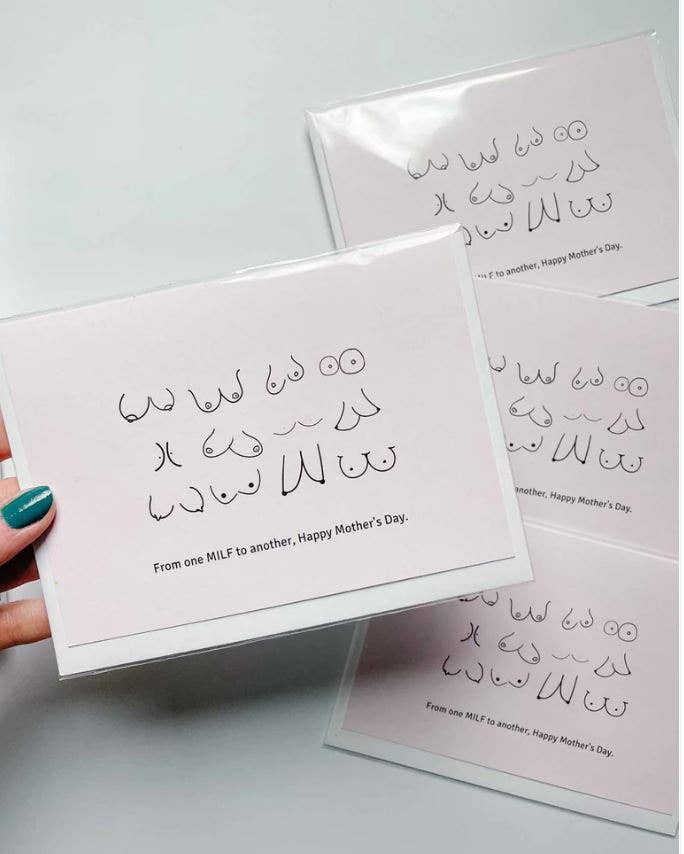 From one MILF to another, Happy Mother's Day.
to another, Happy Mother's Day.
another, Happy Mother's Day.
From one MILF to another, Happy Mother's Day.